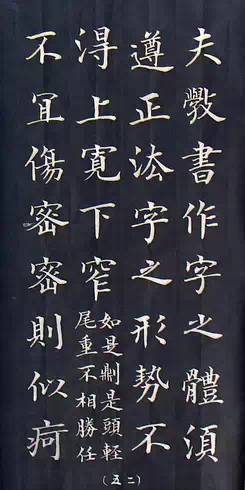 夫斆書作字之體須
遵正法字之形勢不
淂上寛下窄
如是則是頭輕
尾重不相勝任
不冝傷宻宻則似疴
（五二）